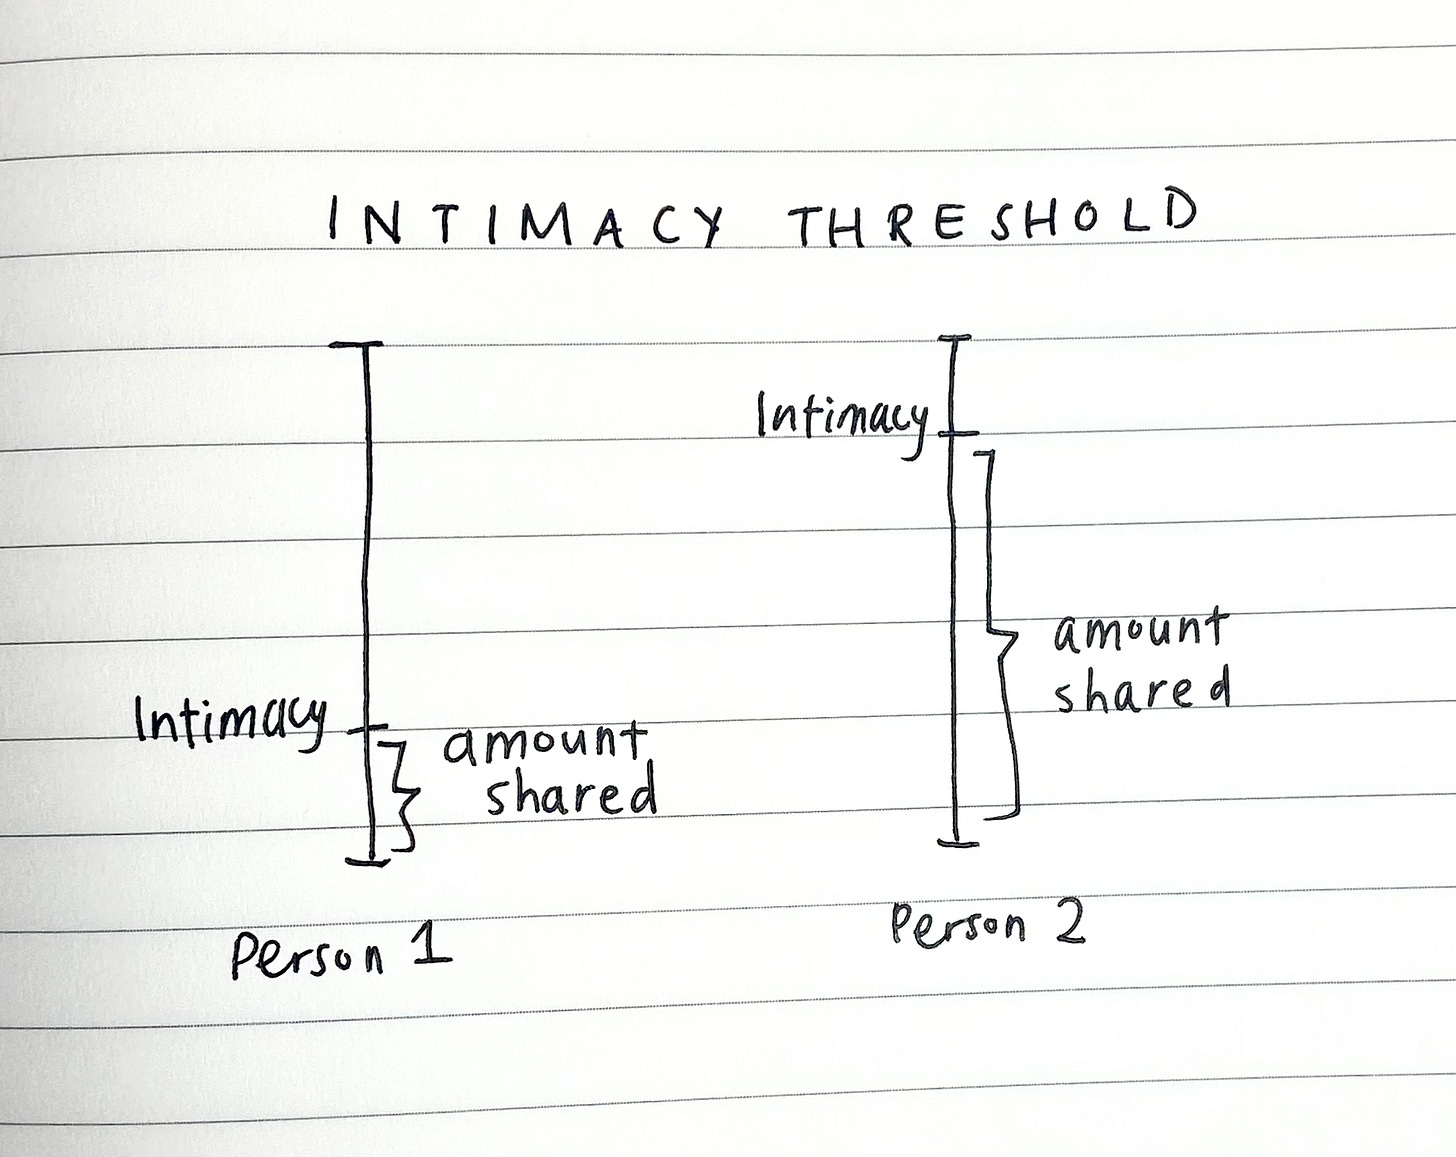 INTIMACY THRESHOLD
Intimacy
amount
shared
Person 1
Intimacy
amount
shared
Person 2